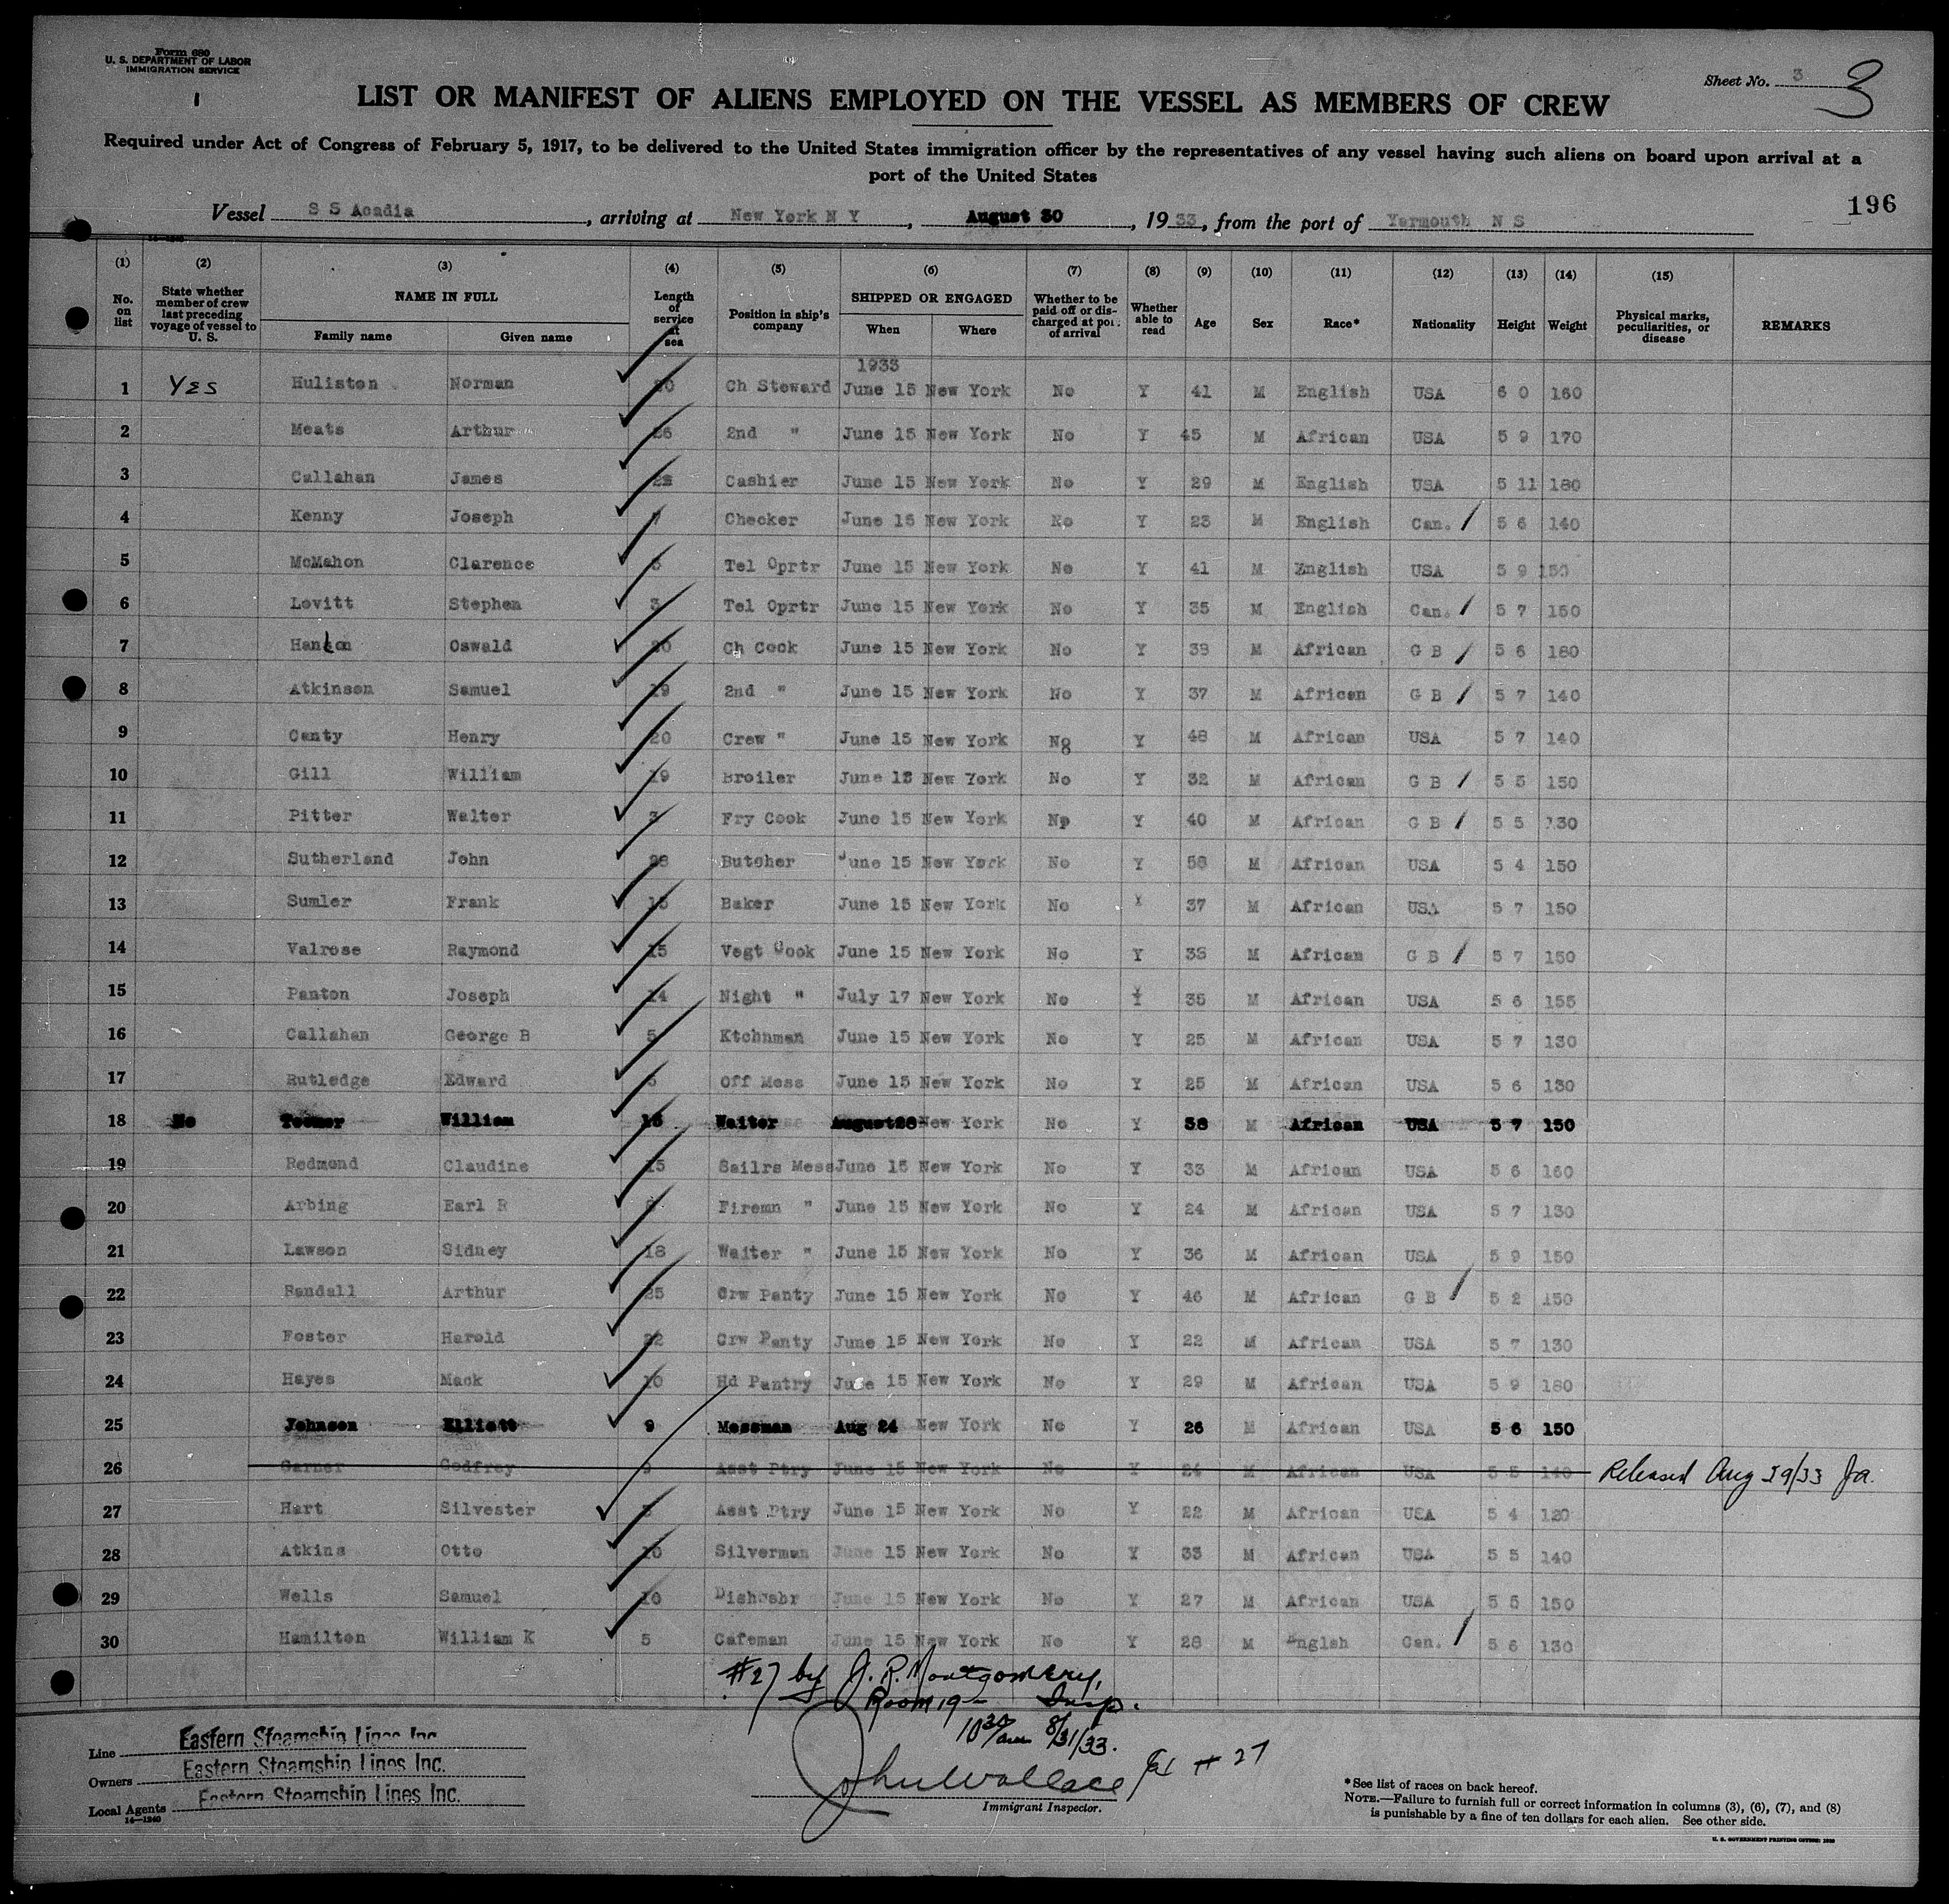 Form 680
U. S. DEPARTMENT OF LABOR
IMMIGRATION SERVICE
1
Sheet No. 3 3
LIST OR MANIFEST OF ALIENS EMPLOYED ON THE VESSEL AS MEMBERS OF CREW
Required under Act of Congress of February 5, 1917, to be delivered to the United States immigration officer by the representatives of any vessel having such aliens on board upon arrival at a
port of the United States
196
Vessel S S Acadia, arriving at New York N Y, August 30, 1933, from the port of Yarmouth N S
(1) (2) (3) (4) (5) (6) (7) (8) (9) (10) (11) (12) (13) (14) (15)
No. on list State whether member of crew last preceding voyage of vessel to U. S. NAME IN FULL Family name Given name Length of service at sea Position in ship's company SHIPPED OR ENGAGED When Where Whether to be paid off or discharged at port of arrival Whether able to read Age Sex Race* Nationality Height Weight Physical marks, peculiarities, or disease REMARKS
1933
1 YES Huliston Norman 20 Ch Steward June 15 New York No Y 41 M English USA 6 0 160
2 Meats Arthur 26 2nd " June 15 New York No Y 45 M African USA 5 9 170
3 Callahan James Cashier June 15 New York No Y 29 M English USA 5 11 180
4 Kenny Joseph 7 Checker June 15 New York No Y 23 M English Can. 5 6 140
5 McMahon Clarence Tel Oprtr June 15 New York No Y 41 M English USA 5 9 150
6 Lovitt Stephen 3 Tel Oprtr June 15 New York No Y 35 M English Can. 5 7 150
7 Oswald 20 Ch Cook June 15 New York No Y 39 M African G B 5 6 180
8 Atkinson Samuel 19 2nd " June 15 New York No Y 37 M African G B 5 7 140
9 Canty Henry 20 Crew " June 15 New York No Y 48 M African USA 5 7 140
10 Gill William 19 Broiler June 15 New York No Y 32 M African G B 5 5 150
11 Pitter Walter 3 Fry Cook June 15 New York No Y 40 M African G B 5 5 130
12 Sutherland John 28 Butcher June 15 New York No Y 58 M African USA 5 4 150
13 Sumler Frank 15 Baker June 15 New York No Y 37 M African USA 5 7 150
14 Valrose Raymond 15 Vegt Cook June 15 New York No Y 35 M African G B 5 7 150
15 Panton Joseph 14 Night " July 17 New York No Y 35 M African USA 5 6 155
16 Callahan George B 5 Ktchnman June 15 New York No Y 25 M African USA 5 7 130
17 Rutledge Edward Off Mess June 15 New York No Y 25 M African USA 5 6 130
18 No Toomer William 16 Waiter August28 New York No Y 38 M African USA 5 7 150
19 Redmond Claudine 15 Sailrs Mess June 15 New York No Y 33 M African USA 5 6 160
20 Arbing Earl R Firemn " June 15 New York No Y 24 M African USA 5 7 130
21 Lawson Sidney 18 Waiter " June 15 New York No Y 36 M African USA 5 9 150
22 Randall Arthur 25 Crw Panty June 15 New York No Y 46 M African G B 5 2 150
23 Foster Harold 22 Crw Panty June 15 New York No Y 22 M African USA 5 7 130
24 Hayes Mack 10 Hd Pantry June 15 New York No Y 29 M African USA 5 9 180
25 Johnson Elliott 9 Messman Aug 24 New York No Y 26 M African USA 5 6 150
26 Garner Godfrey 9 Asst Ptry June 15 New York No Y 24 M African USA 5 5 140 Released Aug 29/33 Ja.
27 Hart Silvester Asst Ptry June 15 New York No Y 22 M African USA 5 4 120
28 Atkins Otto 10 Silverman June 15 New York No Y 33 M African USA 5 5 140
29 Wells Samuel 10 Dishwshr June 15 New York No Y 27 M African USA 5 5 150
30 Hamilton William K 5 Cafeman June 15 New York No Y 28 M Englsh Can. 5 6 130
#27 by J. R. Montgomery,
Room 19 - Insp.
10 30/am 8/31/33.
Line Eastern Steamship Lines Inc.
Owners Eastern Steamship Lines Inc.
Local Agents Eastern Steamship Lines Inc.
14—1240
John Wallace # 27
Immigrant Inspector.
*See list of races on back hereof.
NOTE.—Failure to furnish full or correct information in columns (3), (6), (7), and (8)
is punishable by a fine of ten dollars for each alien. See other side.
U. S. GOVERNMENT PRINTING OFFICE: